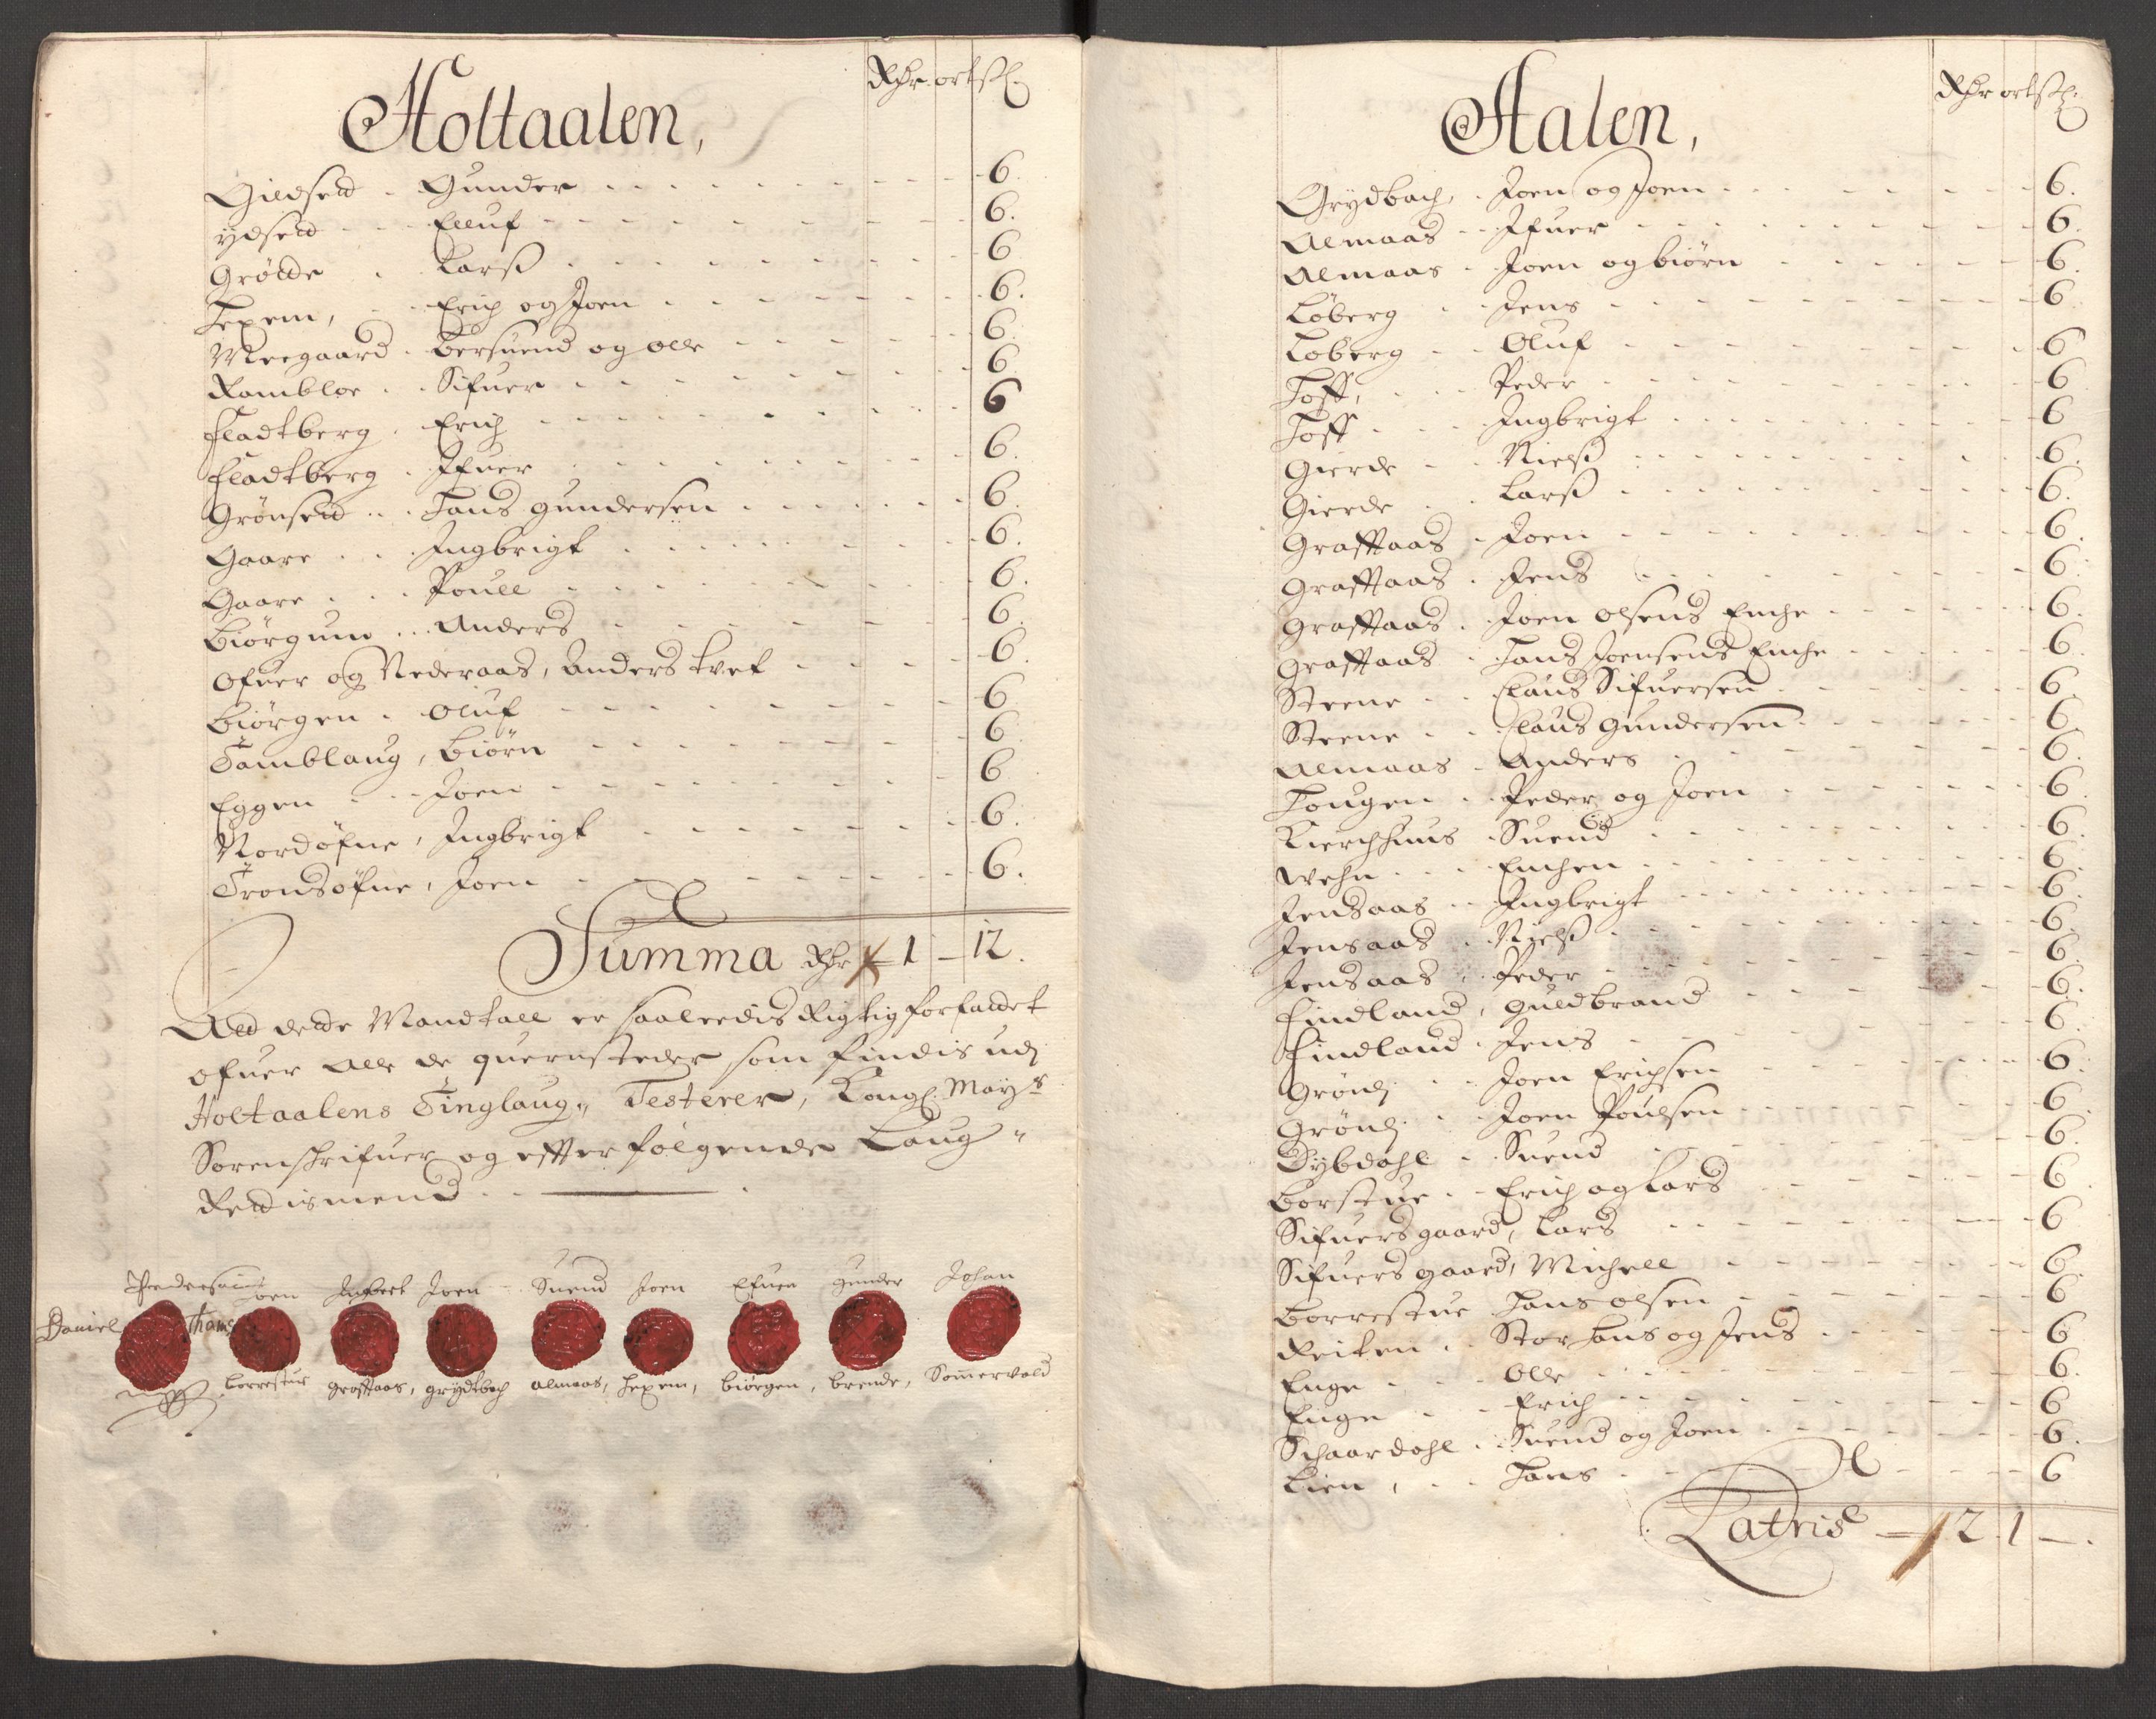 Holtaalen,
Rdr ort ß
Gildset Gunder 6.
ydset Elluf 6.
Grøtte Larß 6
Hexem, Erich og Joen 6.
Moegaard Bersuend og Olle 6
Rambloe Sifuer 6.
Fladtberg Erich 6
Fladtberg Ifuer 6.
Grønset Hans Gundersen 6.
Gaare Ingbrigt 6.
Gaare Pouell 6.
Biørgum Anders 6.
Ofuer og Nederaas, Anders tvet 6.
Biørgen Oluf 6
Tamblaug, Biørn 6
Eggen Joen 6
Nordøfne, Ingbrigt 6.
Trondsøfne, Joen 6.
Summa Rdr 1 – 12.
Att dette Mandtall er saaleedis Rigtig forfattet
ofuer alle de quernsteder som findis udj
Holtaalens Tinglaug, Testerer, Kongl. Mayts
Sorenschrifuer og effterfølgende Laug-
Rettismend
Pedersøin Joen Ingbret Joen Suend Joen Efuen Gunder Johan
Daniel Thams
Borrestue Graftaas, Grydtbach Almaas, Hexem, Biørgen, Brende, Sommervold
Aalen,
Rdr ort ß
Grydbach, Joen og Joen 6.
Almaas Ifuer 6.
Almaas Joen og Biørn 6.
Løberg Jens 6
Løberg Oluf 6
Hoff, Peder 6
Hoff Ingbrigt 6
Gierde Nielß 6.
Gierde Larß 6.
Graftaas Joen 6.
Graftaas Jens 6.
Graftaas Joen Olsens Enche 6.
Graftaas Hans Joensens Enche 6.
Steene Claus Sifuersen 6
Steene Claus Gundersen 6.
Almaas Anders 6.
Hougen Peder og Joen 6.
Kierchhuus Suend 6.
Wehn Enchen 6.
Jensaas Ingbrigt 6.
Jensaas Nielß 6.
Jensaas Peder 6.
Findland, Guldbrand 6.
Findland Jens 6.
Grønlj Joen Erichsen 6.
Grønlj Joen Poulsen 6.
Dybdahl Suend 6.
Borstue Erich og Lars 6
Sifuersgaard, Lars 6
Sifuersgaard, Michell 6.
Borrestue Hans Olsen 6
Reiten Stor Hans og Jens 6
Enge Olle 6.
Enge Erich 6
Schaardahl Suend og Joen 6.
Lien, Hans 6
Latris – 2 1 –.